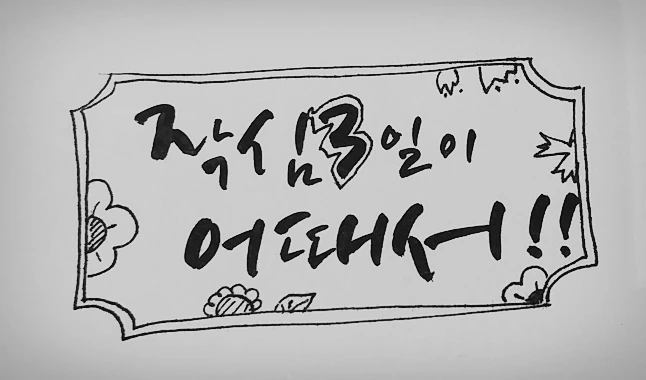 작심3일이
어때서!!